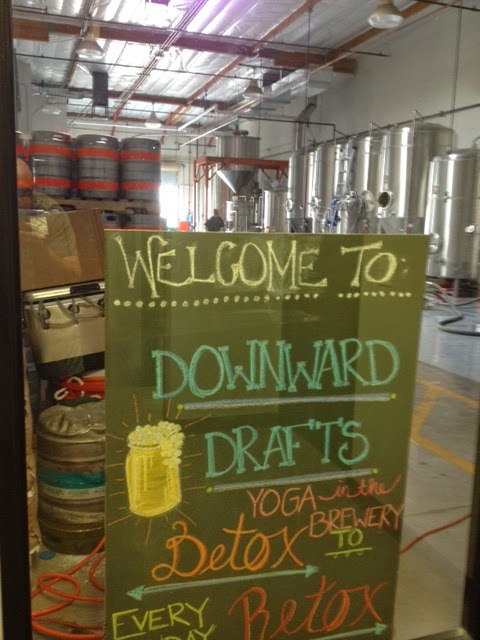 WELCOME TO:
DOWNWARD
DRAFTS
YOGA in the
BREWERY
Detox TO
Retox
EVERY